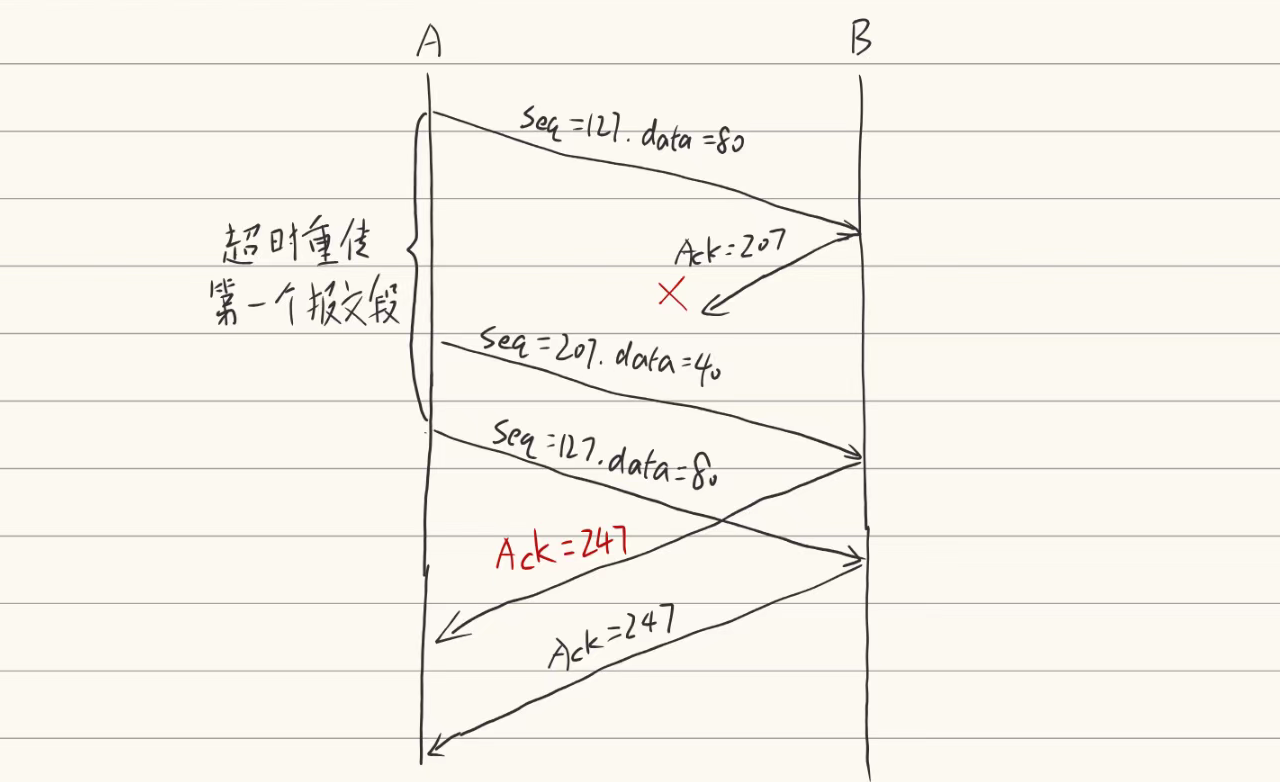 A
B
Seq=127. data=80
Ack=207
超时重传
第一个报文段
×
Seq=207. data=40
Seq=127. data=80
Ack=247
Ack=247